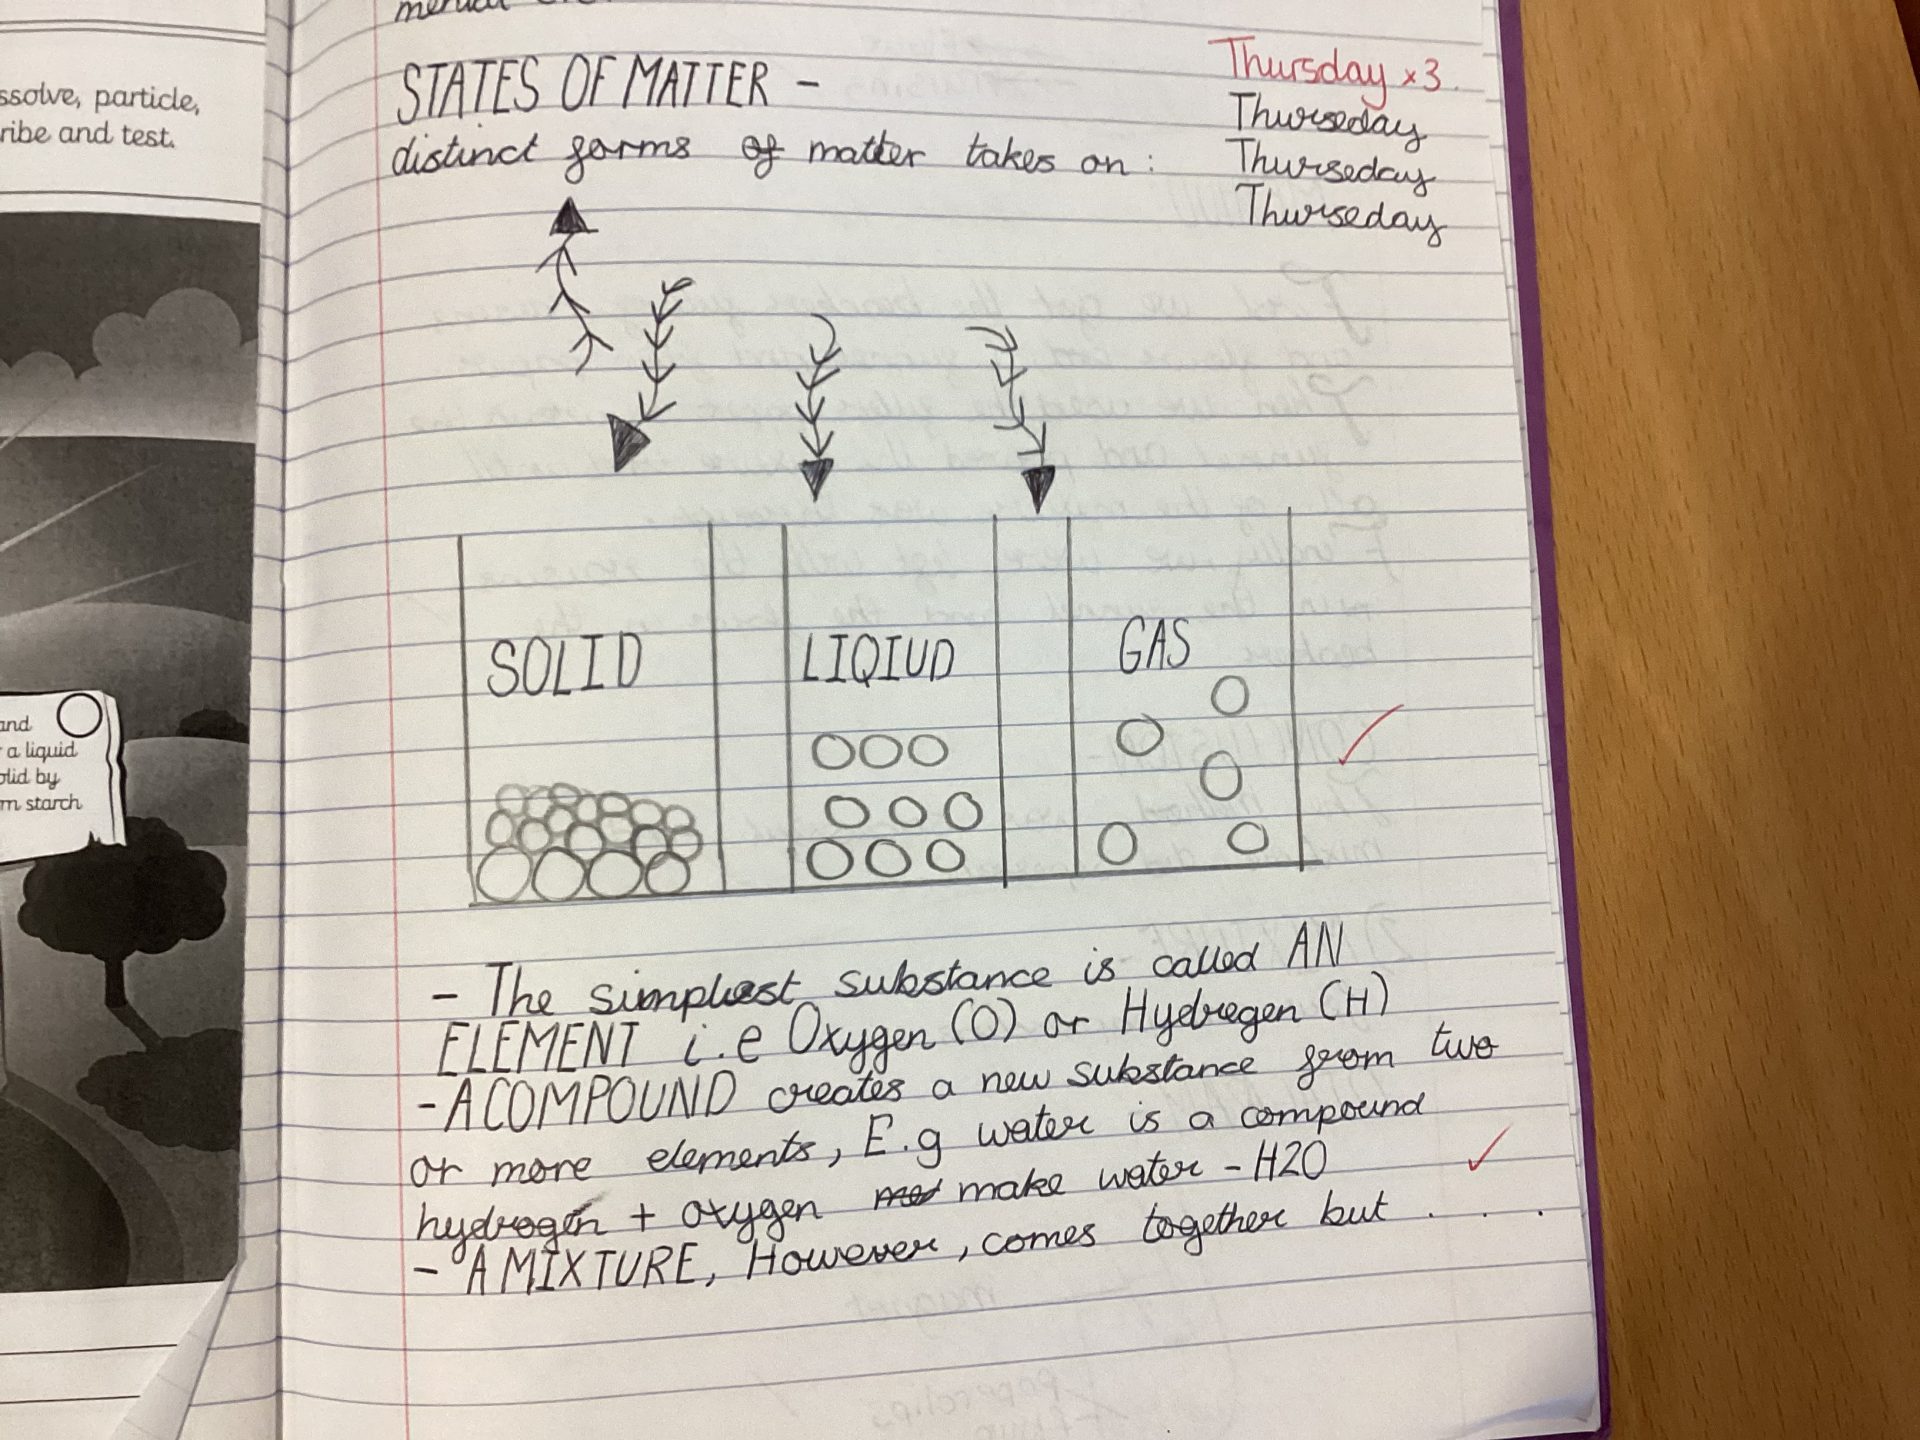 ssolve, particle,
ribe and test.
and
a liquid
olid by
rn starch
STATES OF MATTER -
distinct forms of matter takes on:
Thursday x3.
Thurseday
Thurseday
Thurseday
SOLID
LIQIUD
GAS
- The simplest substance is called AN
ELEMENT i.e Oxygen (O) or Hydregen (H)
- A COMPOUND creates a new substance from two
or more elements, E.g water is a compound
hydrogen + oxygen make water - H2O
- A MIXTURE, However, comes together but . . .